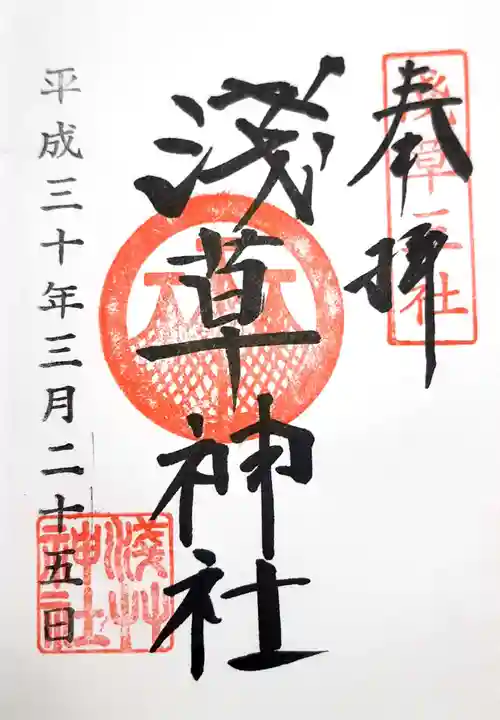 奉拝
浅草三社
淺草神社
平成三十年三月二十五日
淺艸
神社